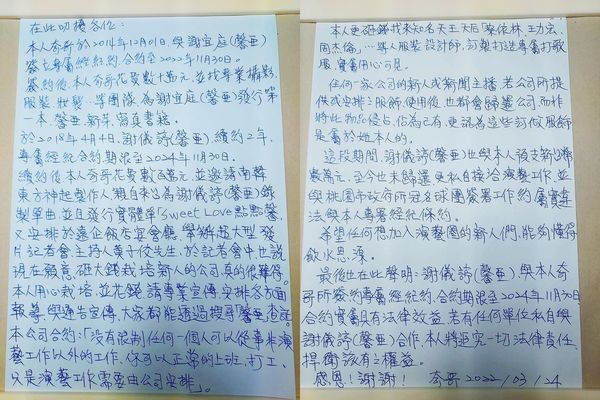 在此叨擾各位:
本人奇哥於2014年12月01日,與謝宜庭(馨亜)
簽立專屬經紀約,合約至2022年11月30日。
簽約後,本人奇哥花費數十萬元,並找專業攝影、
服裝、妝髮…等團隊,為謝宜庭(馨亜)發行第
一本,馨亜新羊寫真書籍。
於2018年4月4日,謝儀諄(馨亜),續約2年,
專屬經紀合約期限至2024年11月30日。
續約後本人奇哥花費數百萬元,並邀請南韓
東方神起製作人,親自來台為謝儀諄(馨亜)錄
製單曲,並且發行實體單「Sweet Love點點馨,
又安排於遠企飯店宴會廳,舉辦超大型發
片記者會,主持人黃子佼先生,於記者會中也說
現在願意砸大錢栽培新人的公司,真的很難得。
本人用心栽培,並花錢請專業宣傳,安排各方面
報導,與通告宣傳,大家都能透過搜尋「馨亜」查証。
本公司合約:「沒有限制任何一個人可以從事非演
藝工作以外的工作,你可以正常的上班,打工、
只是演藝工作需要由公司安排」。
本人更砸錢找來知名天王天后「蔡依林、王力宏、
周杰倫」…等人服裝設計師,訂製打造專屬打歌
服,實屬用心可見。
任何一家公司的新人或新聞主播,若公司所提
供或安排之服飾,使用後,也都會歸還公司,而非
將此物品侵占,佔為己有,更認為這些訂做服飾
是屬於她本人的。
這段期間,謝儀諄(馨亜)也與本人預支薪酬
數萬元,至今也未歸還,更私自接洽演藝工作,並
與桃園市政府所冠名球團簽署工作約,屬實違
法與本人專署經紀條約。
希望任何想加入演藝圈的新人們,能夠懂得
飲水思源。
最後也在此聲明:謝儀諄(馨亜)與本人奇
哥所簽約專屬經紀約,合約期限至2024年11月30日
合約實屬具有法律效益,若有任何單位私自與
謝儀諄(馨亜)合作,本人將追究一切法律責任,
捍衛該有之權益。
感恩!謝謝! 奇哥2022/03/24